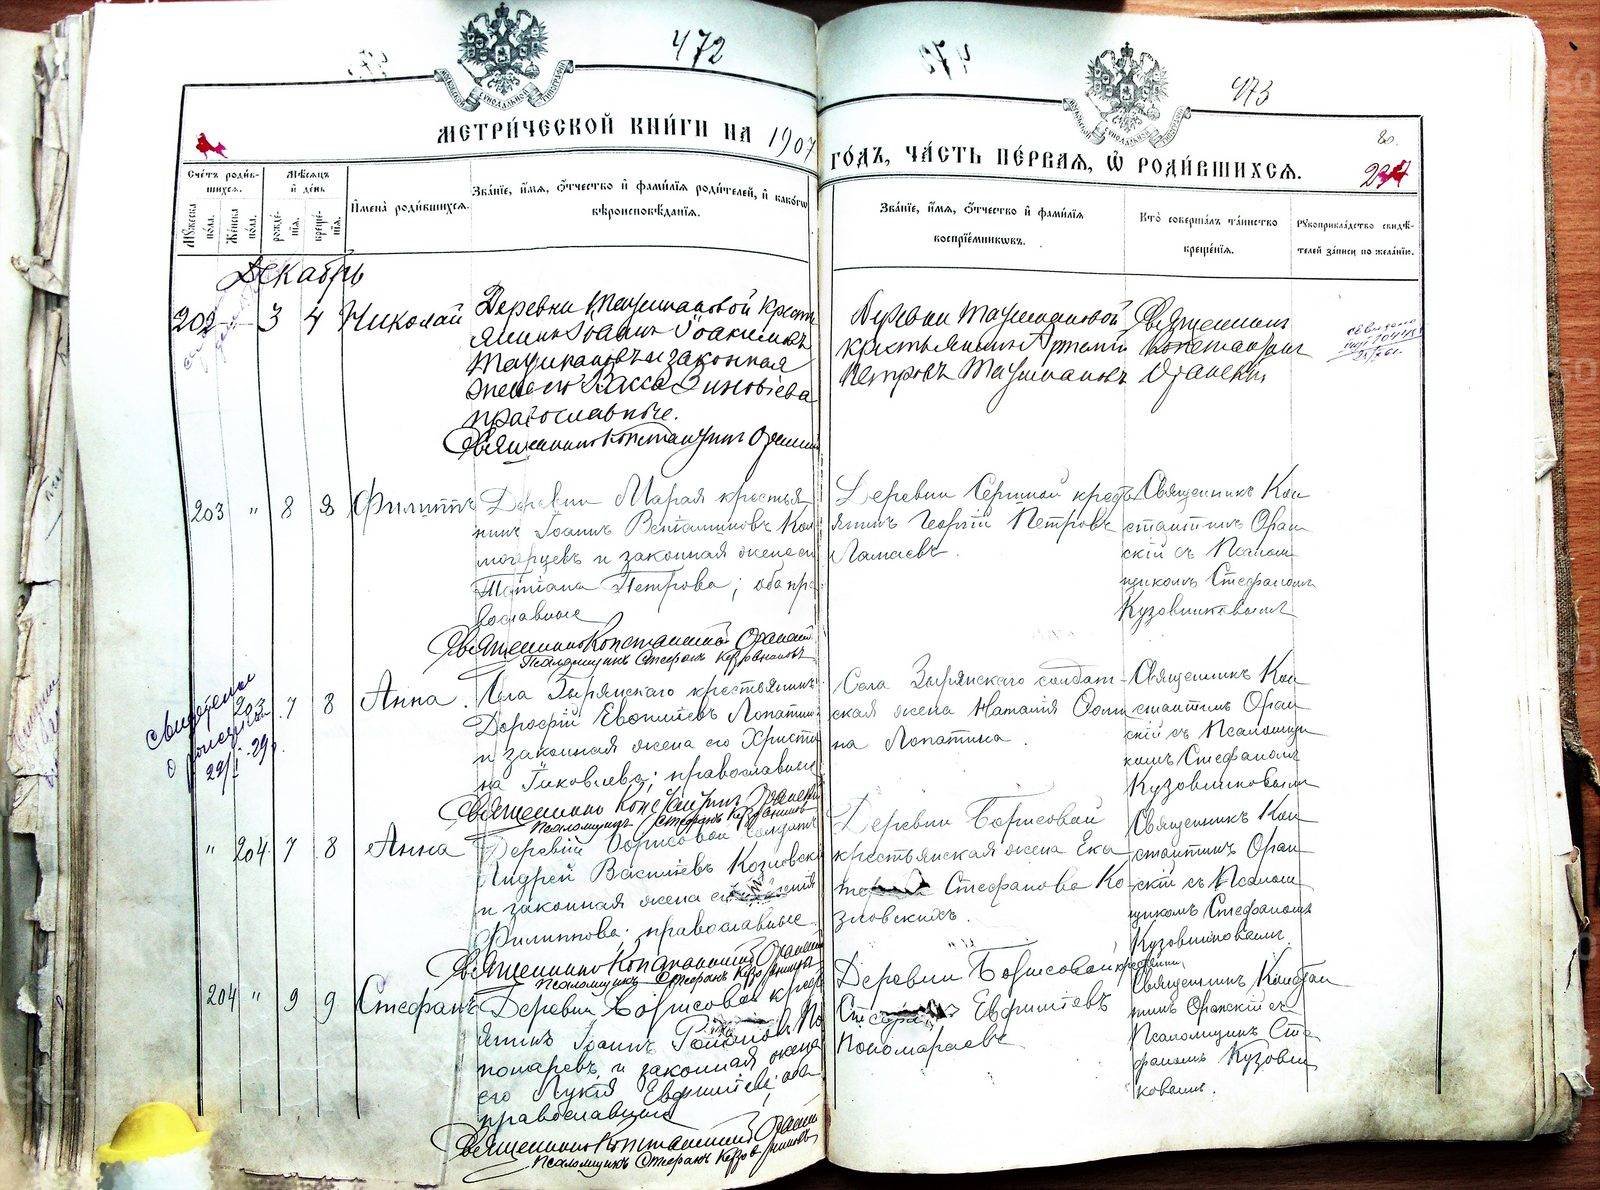 472
473
МЕТРИ́ЧЕСКОЙ КНИ́ГИ НА 1907
ГО́ДЪ, ЧА́СТЬ ПЕ́РВАЯ, Ѡ҆ РОДИ́ВШИХСЯ.
80.
Сче́тъ роди́в-
шихся.
Мѣ́сяцъ
и҆ де́нь
Му́жеска
по́ла.
Же́нска
по́ла.
рожде́-
нїя.
креще́-
нїя.
И҆мена̀ роди́вшихся.
Зва́нїе, и҆́мя, ѻ҆́тчество и҆ фами́лїя роди́телей, и҆ како́гѡ
вѣроисповѣ́данїя.
Зва́нїе, и҆́мя, ѻ҆́тчество и҆ фами́лїя
воспрїе́мникѡвъ.
Кто̀ соверша́лъ та́инство
креще́нїя.
Рукоприкла́дство свидѣ́-
телей за́писи по жела́нїю.
Декабрь
202 3 4 Николай
Деревни Таушкановой крест
янинъ Іоаннъ Іоакимовъ
Таушкановъ и законная
жена его Васса Зиновіева
православные.
Священникъ Константинъ Оранскій
Деревни Таушкановой
крестьянинъ Артемій
Петровъ Таушкановъ
Священникъ
Константинъ
Оранскій
203 " 8 8 Филиппъ
Деревни Марая крестья
нинъ Іоаннъ Веніаминовъ Кол
могорцевъ и законная жена его
Татіана Петрова; оба пра
вославные
Священникъ Константинъ Оранскій
Псаломщикъ Стефанъ Кузовниковъ
янинъ Георгій Петровъ
Ламаевъ.
Священникъ Кон
стантинъ Оран
скій съ Псалом
щикомъ Стефаномъ
Кузовниковымъ
203 7 8 Анна.
Села Зырянскаго крестьянинъ
Дорофей Евфиміевъ Лопатинъ
и законная жена его Христи
на Іаковлева; православные
Священникъ Константинъ Оранскій
Псаломщикъ Стефанъ Кузовниковъ
Села Зырянскаго солдат-
ская жена Наталія
на Лопатина.
Священникъ Кон
стантинъ Оран
скій съ Псаломщи
комъ Стефаномъ
Кузовниковымъ
22/I 29 г.
" 204 7 8 Анна
Деревни Борисовой солдатъ
Андрей Васильевъ Козловскихъ
и законная жена его
Филиппова; православные.
Священникъ Константинъ Оранскій
Псаломщикъ Стефанъ Кузовниковъ
Деревни Борисовой
крестьянская жена Ека
Стефанова Ко
зловскихъ.
Священникъ Кон
стантинъ Оран
скій съ Псалом
щикомъ Стефаномъ
Кузовниковымъ
204 " 9 9 Стефанъ
Деревни Борисовой крест
янинъ Іоаннъ По
номаревъ и законная жена
его Лукія Евфиміева; оба
православные
Священникъ Константинъ Оранскій
Псаломщикъ Стефанъ Кузовниковъ
Деревни Борисовой
Евфиміевъ
Пономаревъ
Священникъ Констан
тинъ Оранскій съ
Псаломщикомъ Сте
фаномъ Кузовни
ковымъ.